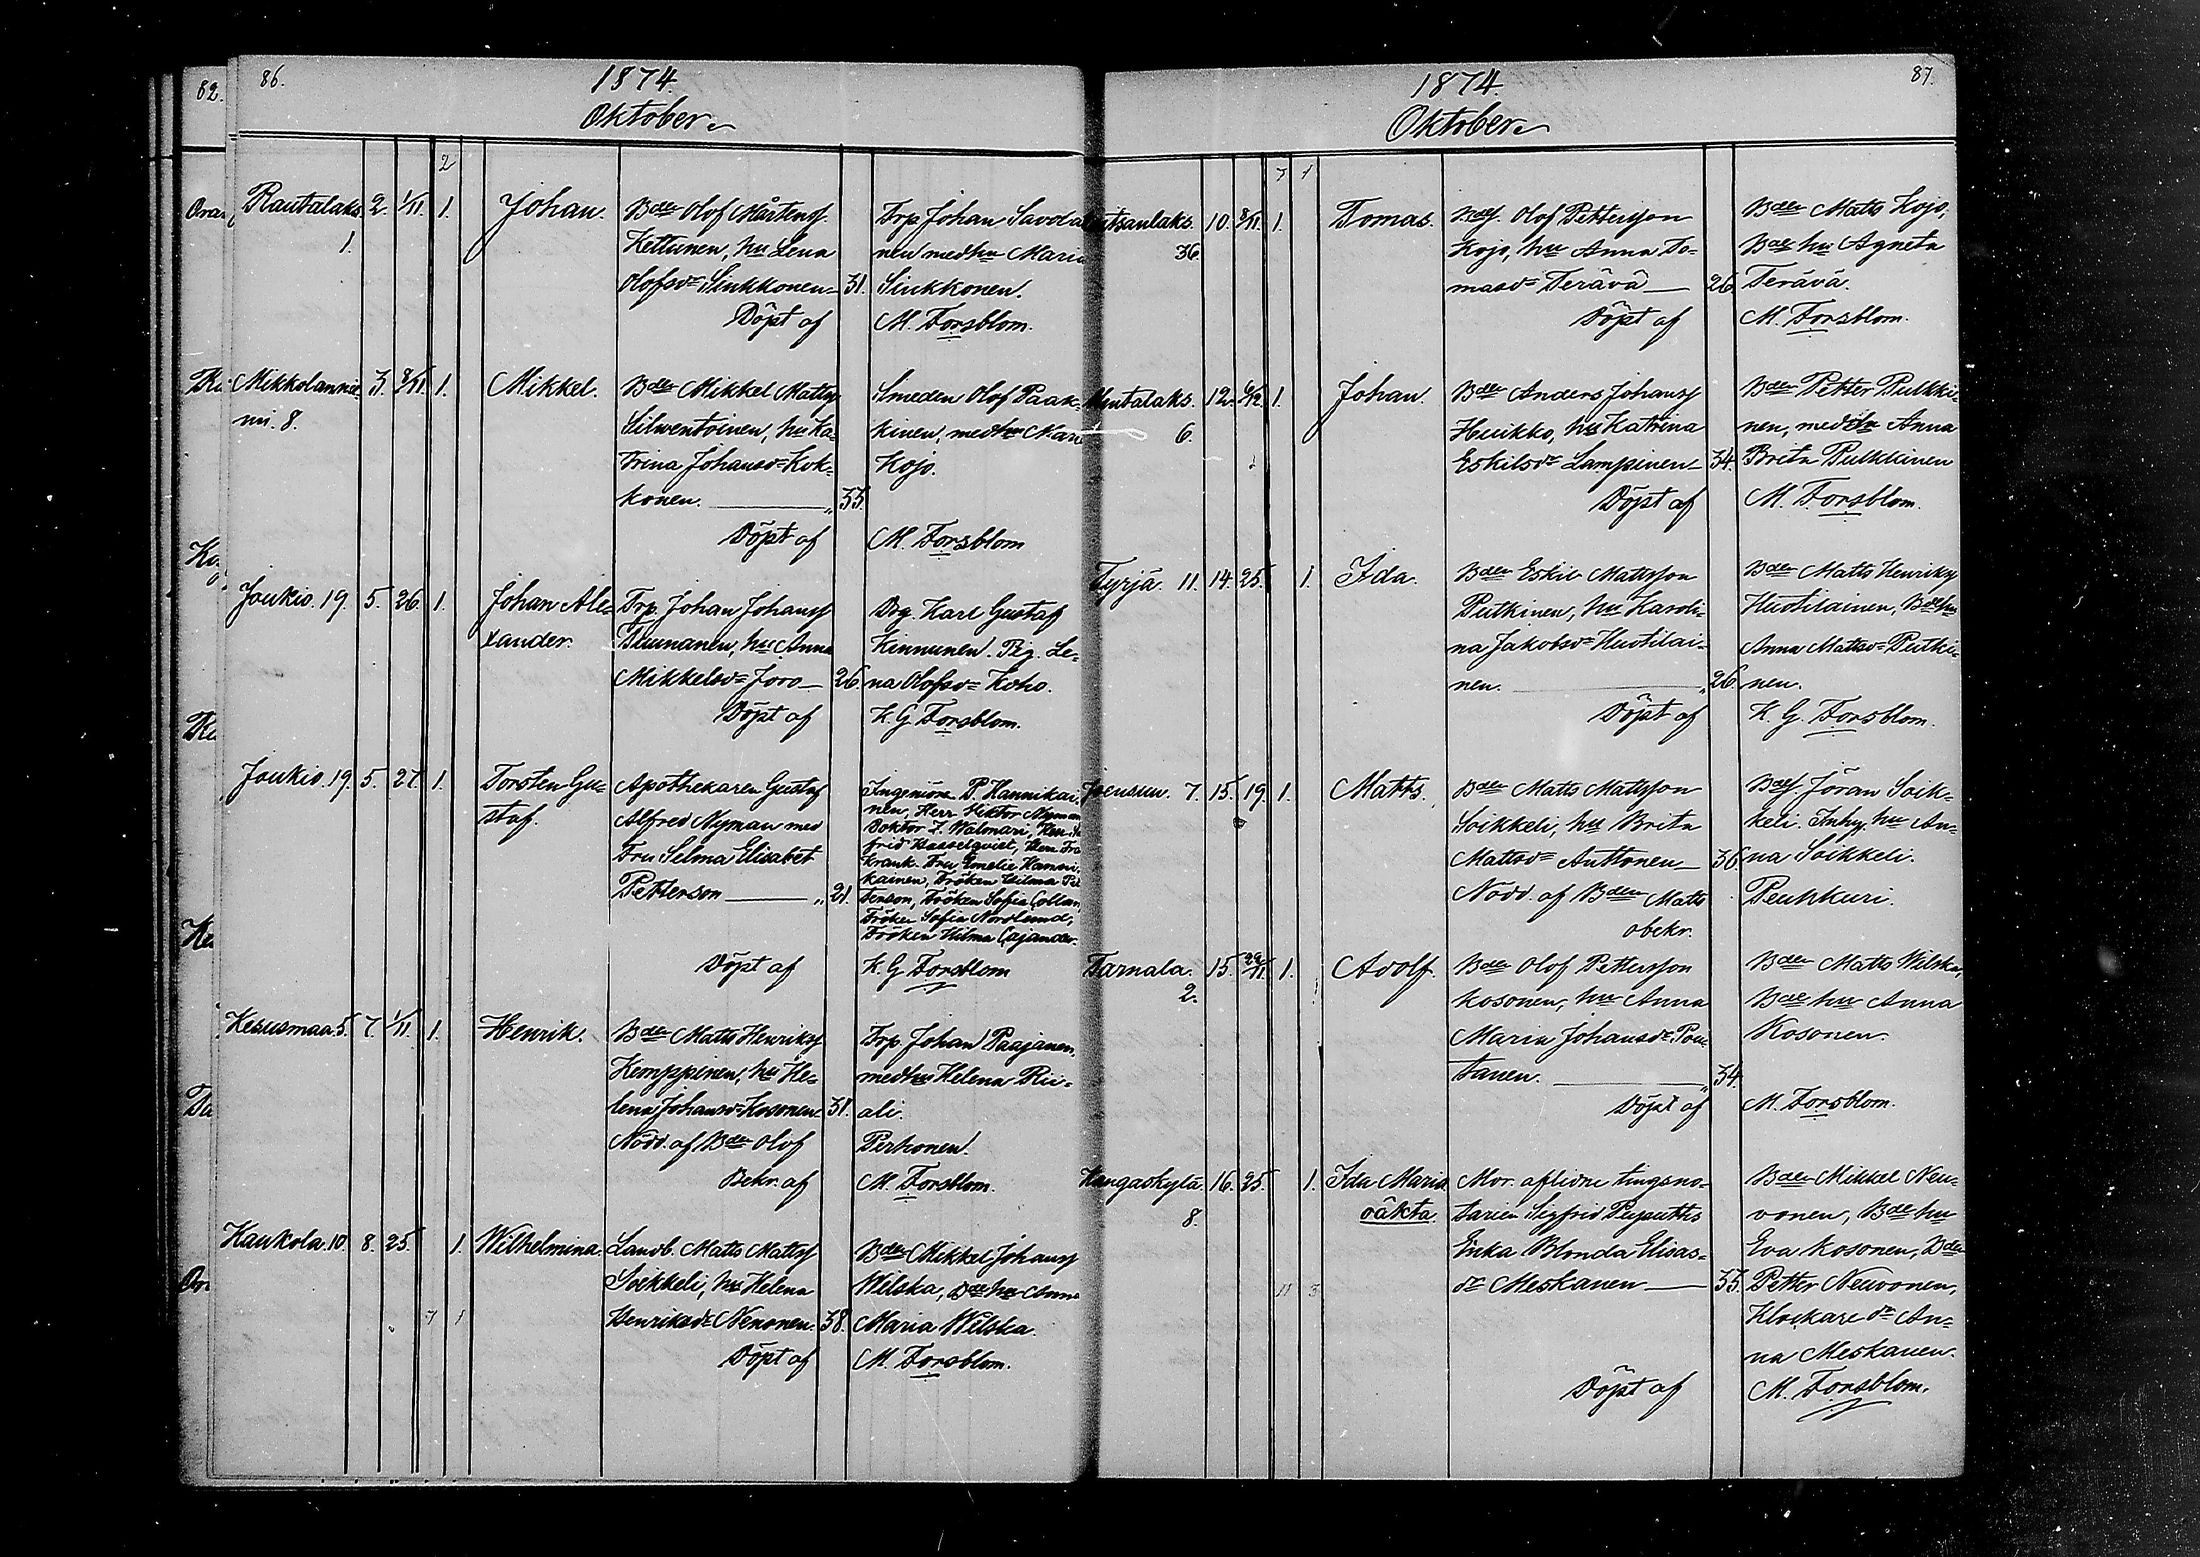 86.
1874.
Oktober.
2
Rautalaks. 2. 1/11. 1. Johan. Bden Olof Mårtenss.
1. Kettunen, hu Lena
Olofsdr Sinkkonen 31.
Döpt af
Trp. Johan Savolai
nen med hu Maria
Sinkkonen.
M. Forsblom.
Mikkolannie- 3. 8/11. 1. Mikkel. Bden Mikkel Mattss.
mi. 8. Silwentoinen, hu Ka-
trina Johansdr Kok-
konen. „ 33.
Döpt af
Smeden Olof Paak-
kinen, med hu Mari
Kojo.
M. Forsblom
Joukio. 19. 5. 26. 1. Johan Ale- Trp. Johan Johanss.
xander. Tuunanen, hu Anna
Mikkelsdr Joro 26.
Döpt af
Drg. Karl Gustaf
Kinnunen. Pig. Le-
na Olofsdr Koho.
K. G Forsblom.
Joukio. 19. 5. 27. 1. Torsten Gu- Apothekaren Gustaf
staf. Alfred Nyman med
Fru Selma Elisabet
Petterson „ 21.
Döpt af
Ingeniörn P. Hannikai-
nen, Herr Hektor Nyman
Doktor Z. Walmari,
frid Hasselqvist,
Krank. Fru Emelie Hanni-
kainen, Fröken Wilma Pet
terson, Fröken Sofia Collan,
Fröken Sofia Nordlund,
Fröken Hilma Cajander.
K. G Forsblom
Kesusmaa. 5. 7. 1/11. 1. Henrik. Bden Matts Henrikss.
Kemppinen, hu He-
lena Johansdr Kosonen 31.
Nödd. af Bden Olof
Bekr. af
Trp. Johan Paajanen,
med hu Helena Rii-
ali.
Perhonen.
M. Forsblom.
Kaukola. 10. 8. 25. 1. Wilhelmina. Landb. Matts Mattss.
Soikkeli, hu Helena
Henriksdr Nenonen. 38.
Döpt af
Bden Mikkel Johanss.
Wilska, Bde hu Anna
Maria Wilska.
M. Forsblom.
7 1
87.
1874.
Oktober.
7 1
10. 8/11. 1. Tomas. Bdes. Olof Pettersson
36. Kojo, hu Anna To-
masdr Terävä 26.
Döpt af
Bden Matts Kojo,
Bde hu Agneta
Terävä.
M. Forsblom.
12. 6/12. 1. Johan. Bden Anders Johanss.
6. Huikko, hu Katrina
Eskilsdr Lampinen 34.
Döpt af
Bden Petter Pulkki-
nen, med hu Anna
Brita Pulkkinen
M. Forsblom.
Tyrjä. 11. 14. 25. 1. Ida. Bden Eskil Mattsson
Putkinen, hu Karoli-
na Jakobsdr Huotilai-
nen. „ 26.
Döpt af
Bden Matts Henrikss.
Huotilainen, Bde hu
Anna Mattsdr Putki-
nen.
K. G. Forsblom.
Joensuu. 7. 15. 19. 1. Matts. Bden Matts Mattsson
Soikkeli, hu Brita
Mattsdr Anttonen 36.
Nödd. af Bden Matts
obekr.
Bdes. Jöran Soik-
keli. Inhy. hu An-
na Soikkeli.
Peuhkuri.
Tarnala. 15. 22/11. 1. Adolf. Bden Olof Pettersson
2. Kosonen, hu Anna
Maria Johansdr Pou-
tanen. „ 34.
Döpt af
Bden Matts Wilska,
Bde hu Anna
Kosonen.
M. Forsblom.
Kangaskylä. 16. 25. 1. Ida Maria Mor. aflidne tingsno-
8. oäkta. tarien Sigfrid
Enka Blonda Elisas-
dr Meskanen 33.
Döpt af
Bden Mikkel Neu-
vonen, Bde hu
Eva Kosonen, Bden
Petter Neuvonen,
Klockare dr An-
na Meskanen.
M. Forsblom.
11 3
82.